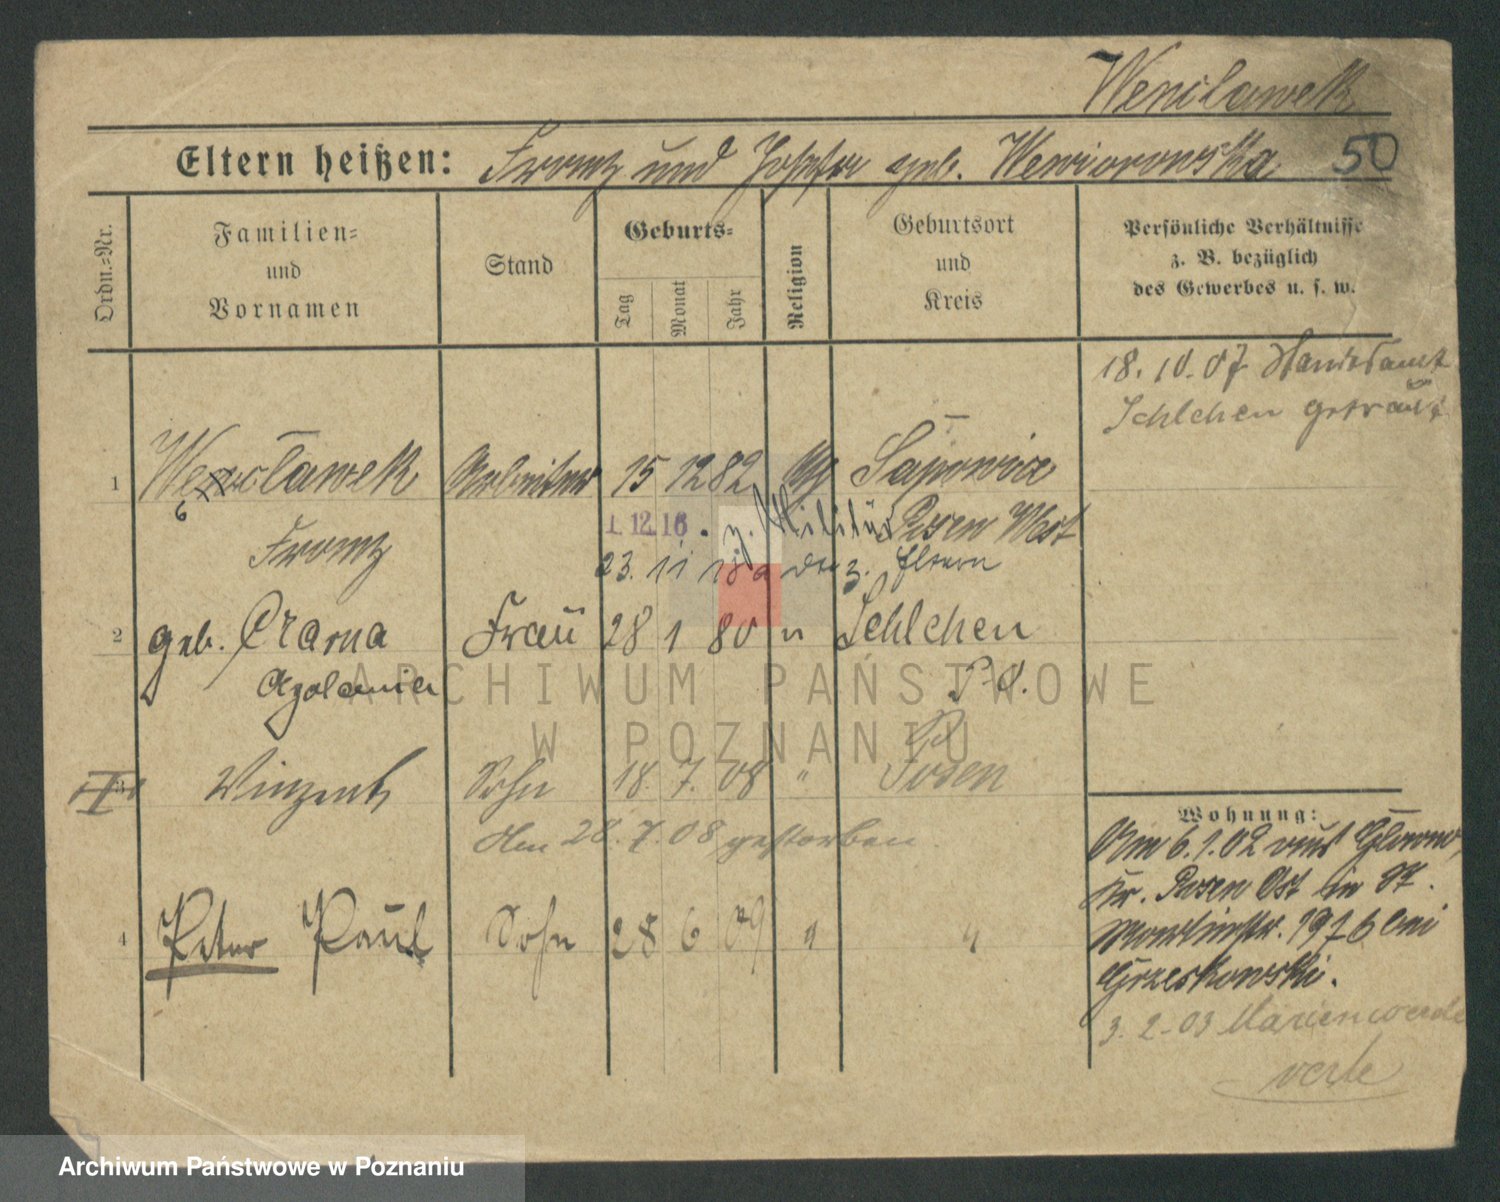 Wencławek
Eltern heißen: Franz und Josefa geb. Wewiorowska 50
Ordn.-Nr.
Familien- und Vornamen
Stand
Geburts-
Tag Monat Jahr
Religion
Geburtsort und Kreis
Persönliche Verhältnisse z. B. bezüglich des Gewerbes u. s. w.
18. 10. 07 Standesamt
Schlehen getraut
1 Wencławek Arbeiter 15 12 82
6
Franz 1. 12. 16. z. Militär Posen West
23. 11 18 z. Eltern
2 geb. Czarna Frau 28 1 80 " Schlehen
P. O.
3 Vinzent Sohn 18. 7. 08 " Posen
Am 28. 7. 08 gestorben.
4 Peter Paul Sohn 28 6 09 " "
Wohnung:
Am 6. 1. 02 aus
Kr. Posen Ost in St.
Martinstr. bei
Grzeskowski.
3. 2. 03 Marienwerder
ARCHIWUM PAŃSTWOWE
W POZNANIU
Archiwum Państwowe w Poznaniu